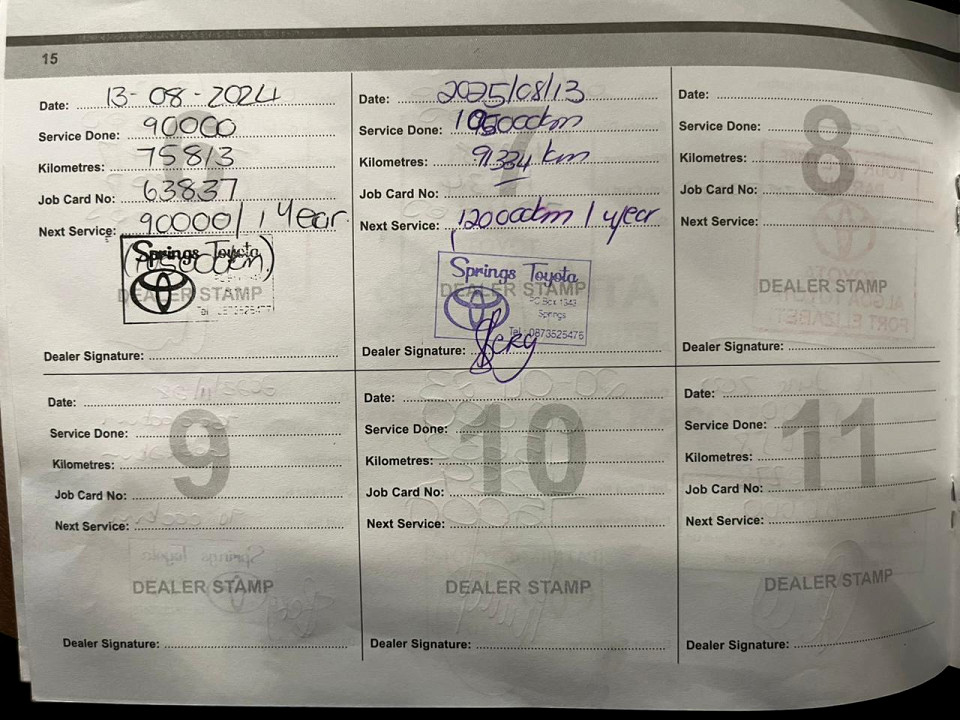 15
Date: 13-08-2024
Service Done: 90000
Kilometres: 75813
Job Card No: 63837
Next Service: 90000/1 Year
Springs Toyota
DEALER STAMP
Dealer Signature:
Date: 2025/08/13
7
Service Done: 105000km
Kilometres: 91334 km
Job Card No:
Next Service: 120000km / year
Springs Toyota
DEALER STAMP
PO Box 1343
Springs
Tel: 0873525476
Dealer Signature:
Date:
8
Service Done:
Kilometres:
Job Card No:
Next Service:
DEALER STAMP
Dealer Signature:
Date:
9
Service Done:
Kilometres:
Job Card No:
Next Service:
DEALER STAMP
Dealer Signature:
Date:
10
Service Done:
Kilometres:
Job Card No:
Next Service:
DEALER STAMP
Dealer Signature:
Date:
11
Service Done:
Kilometres:
Job Card No:
Next Service:
DEALER STAMP
Dealer Signature: